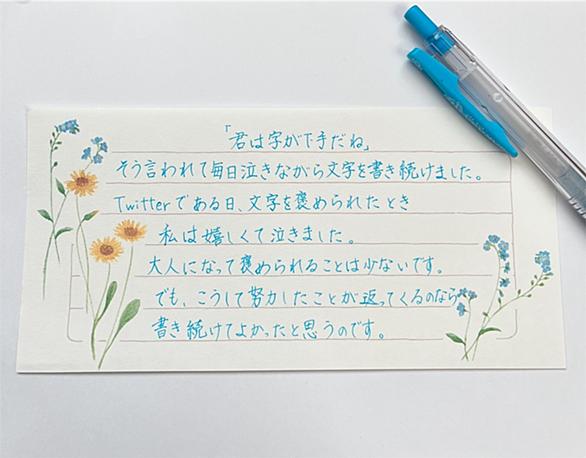 「君は字が下手だね」
そう言われて毎日泣きながら文字を書き続けました。
Twitterである日、文字を褒められたとき
私は嬉しくて泣きました。
大人になって褒められることは少ないです。
でも、こうして努力したことが返ってくるのなら
書き続けてよかったと思うのです。